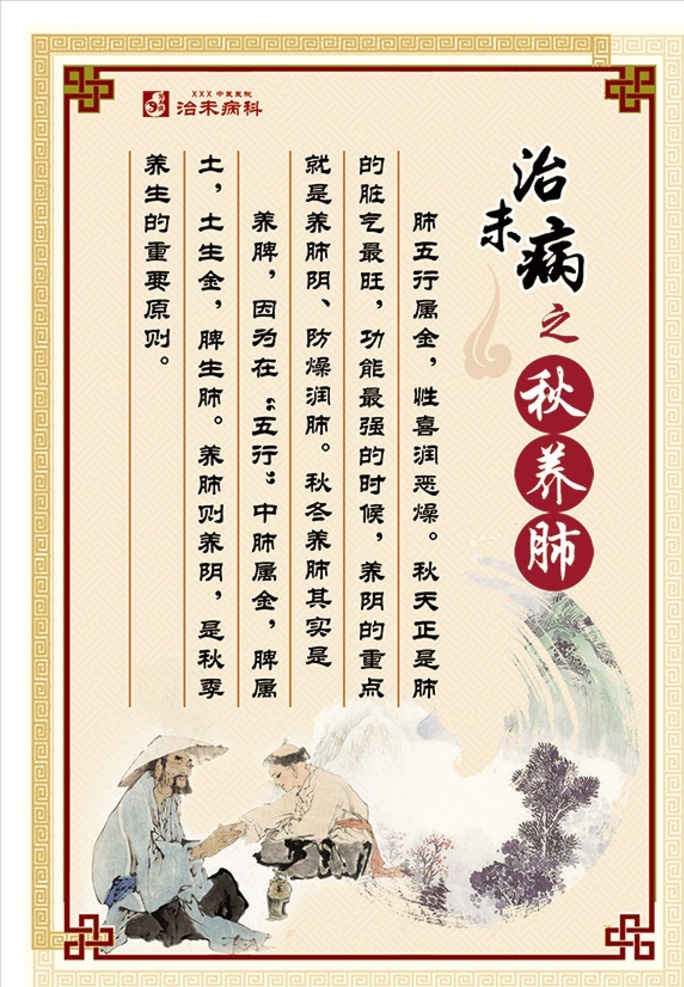 XXX中医医院
治未病科
治未病之秋养肺
肺五行属金，性喜润恶燥。秋天正是肺
的脏气最旺，功能最强的时候，养阴的重点
就是养肺阴、防燥润肺。秋冬养肺其实是
养脾，因为在“五行”中肺属金，脾属
土，土生金，脾生肺。养肺则养阴，是秋季
养生的重要原则。